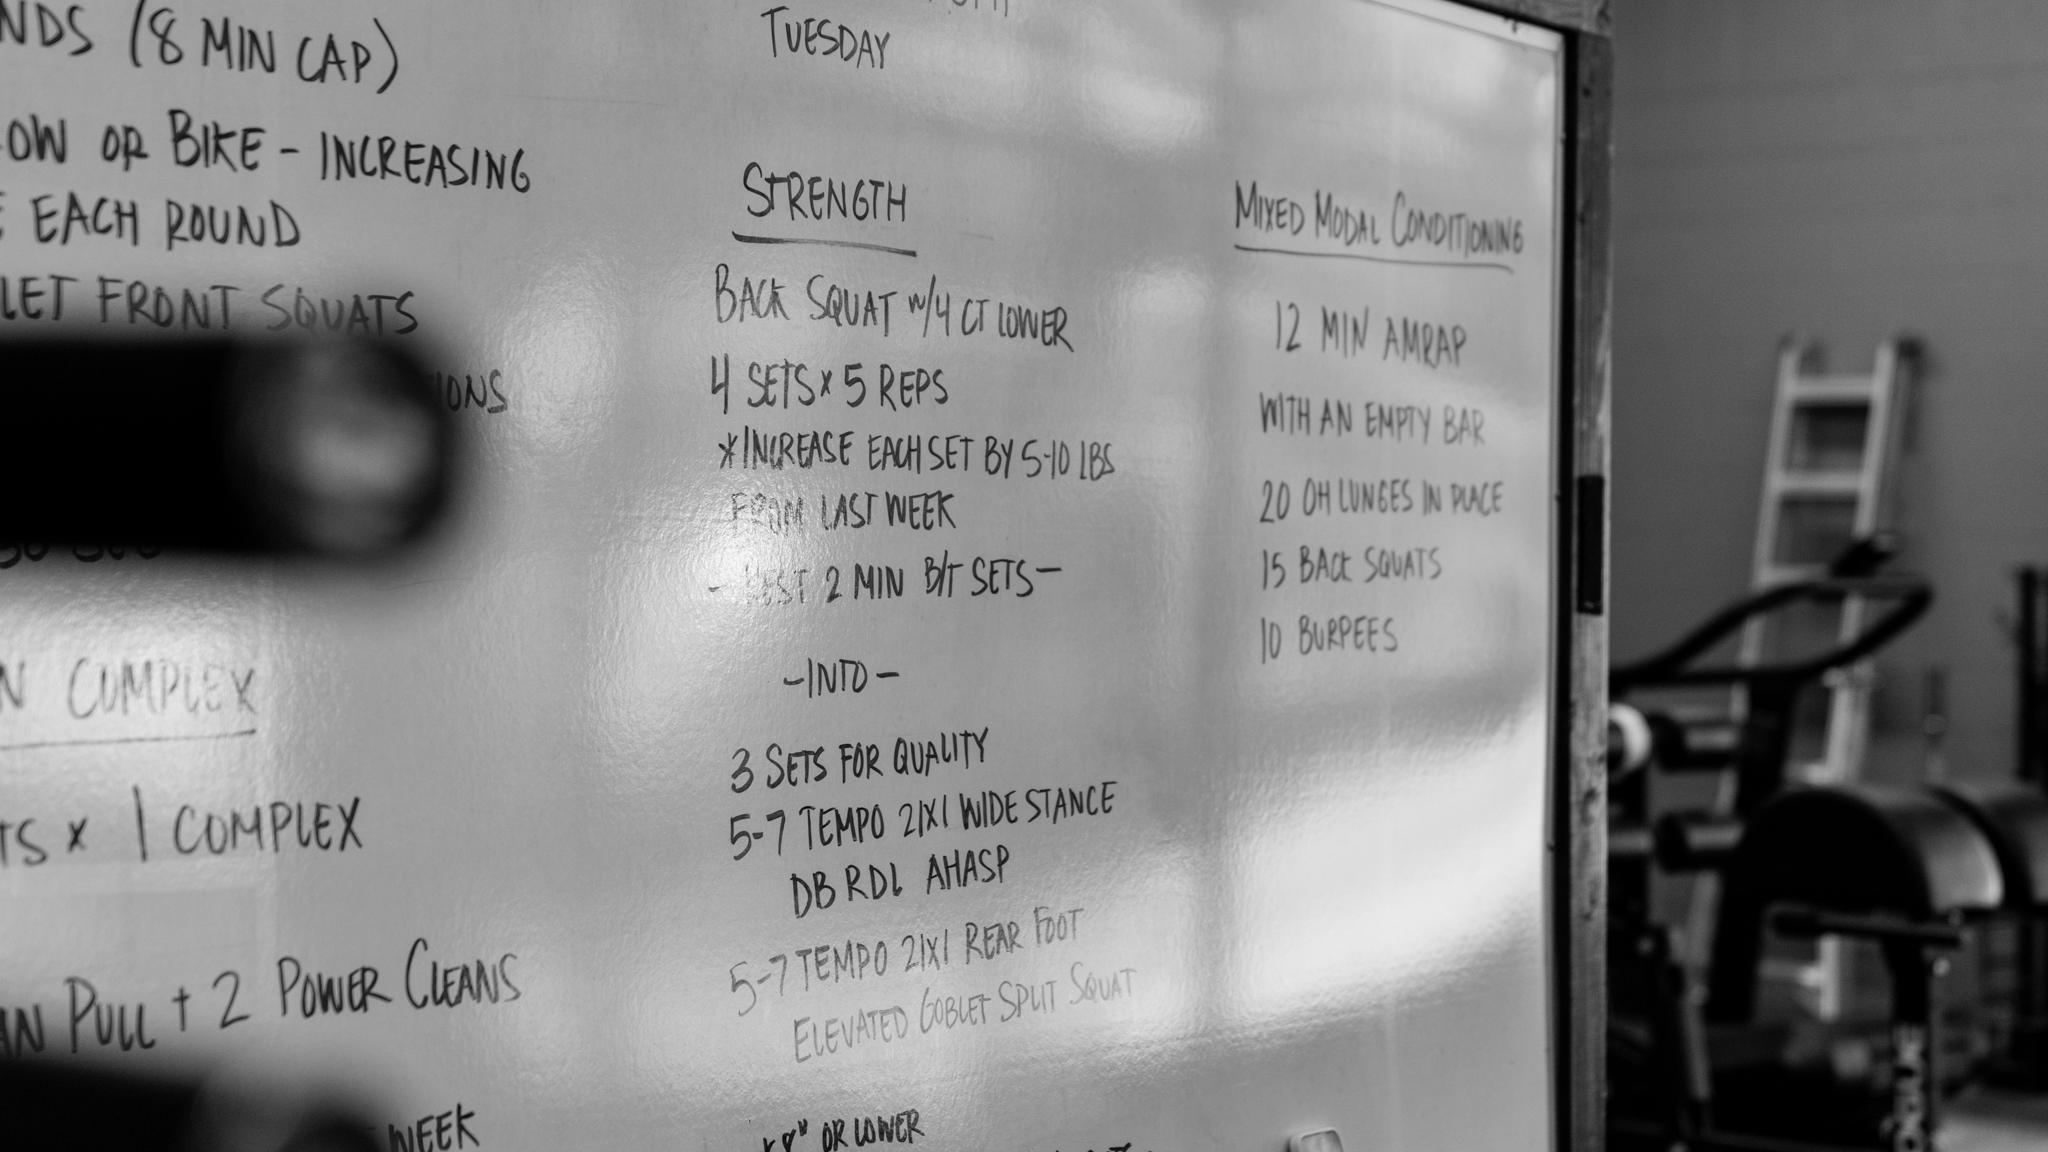 (8 MIN CAP)
OR BIKE - INCREASING
EACH ROUND
FRONT SQUATS
COMPLEX
x 1 COMPLEX
PULL + 2 POWER CLEANS
WEEK
TUESDAY
STRENGTH
BACK SQUAT W/4 CT LOWER
4 SETS x 5 REPS
*INCREASE EACH SET BY 5-10 LBS
FROM LAST WEEK
- REST 2 MIN B/T SETS -
- INTO -
3 SETS FOR QUALITY
5-7 TEMPO 21X1 WIDE STANCE
DB RDL AHASP
5-7 TEMPO 21X1 REAR FOOT
ELEVATED GOBLET SPLIT SQUAT
OR LOWER
MIXED MODAL CONDITIONING
12 MIN AMRAP
WITH AN EMPTY BAR
20 OH LUNGES IN PLACE
15 BACK SQUATS
10 BURPEES
ROGUE